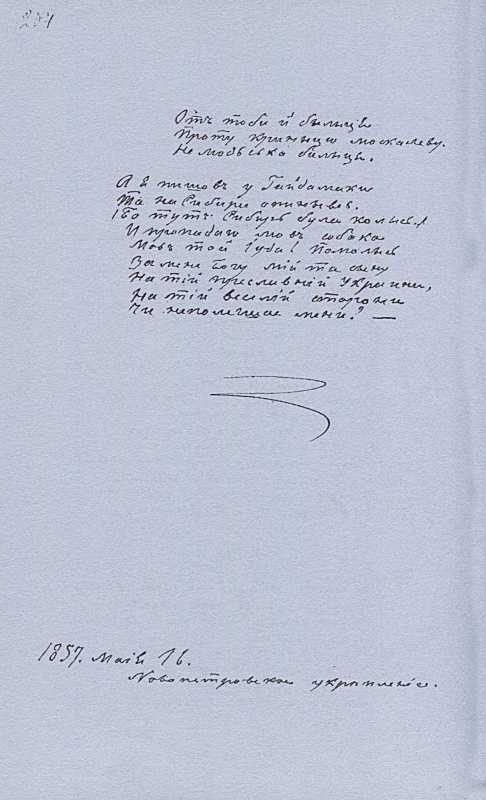 274
Отъ тоби й былыця
Проту криныцю москалеву.
Нелюдська былыця.
А я пишовъ у Гайдамаки
Та на Сибири опынывсь.
(Бо тутъ Сибирь була колысь.)
И пропадаю мовъ собака
Мовъ той Іуда! Помолысь
За мене Богу мій ты сыну
На тій преславній Украини,
На тій веселій сторони
Чи неполегшае мени? —
1857. Маія 16.
Новопетровское укрипленіе.